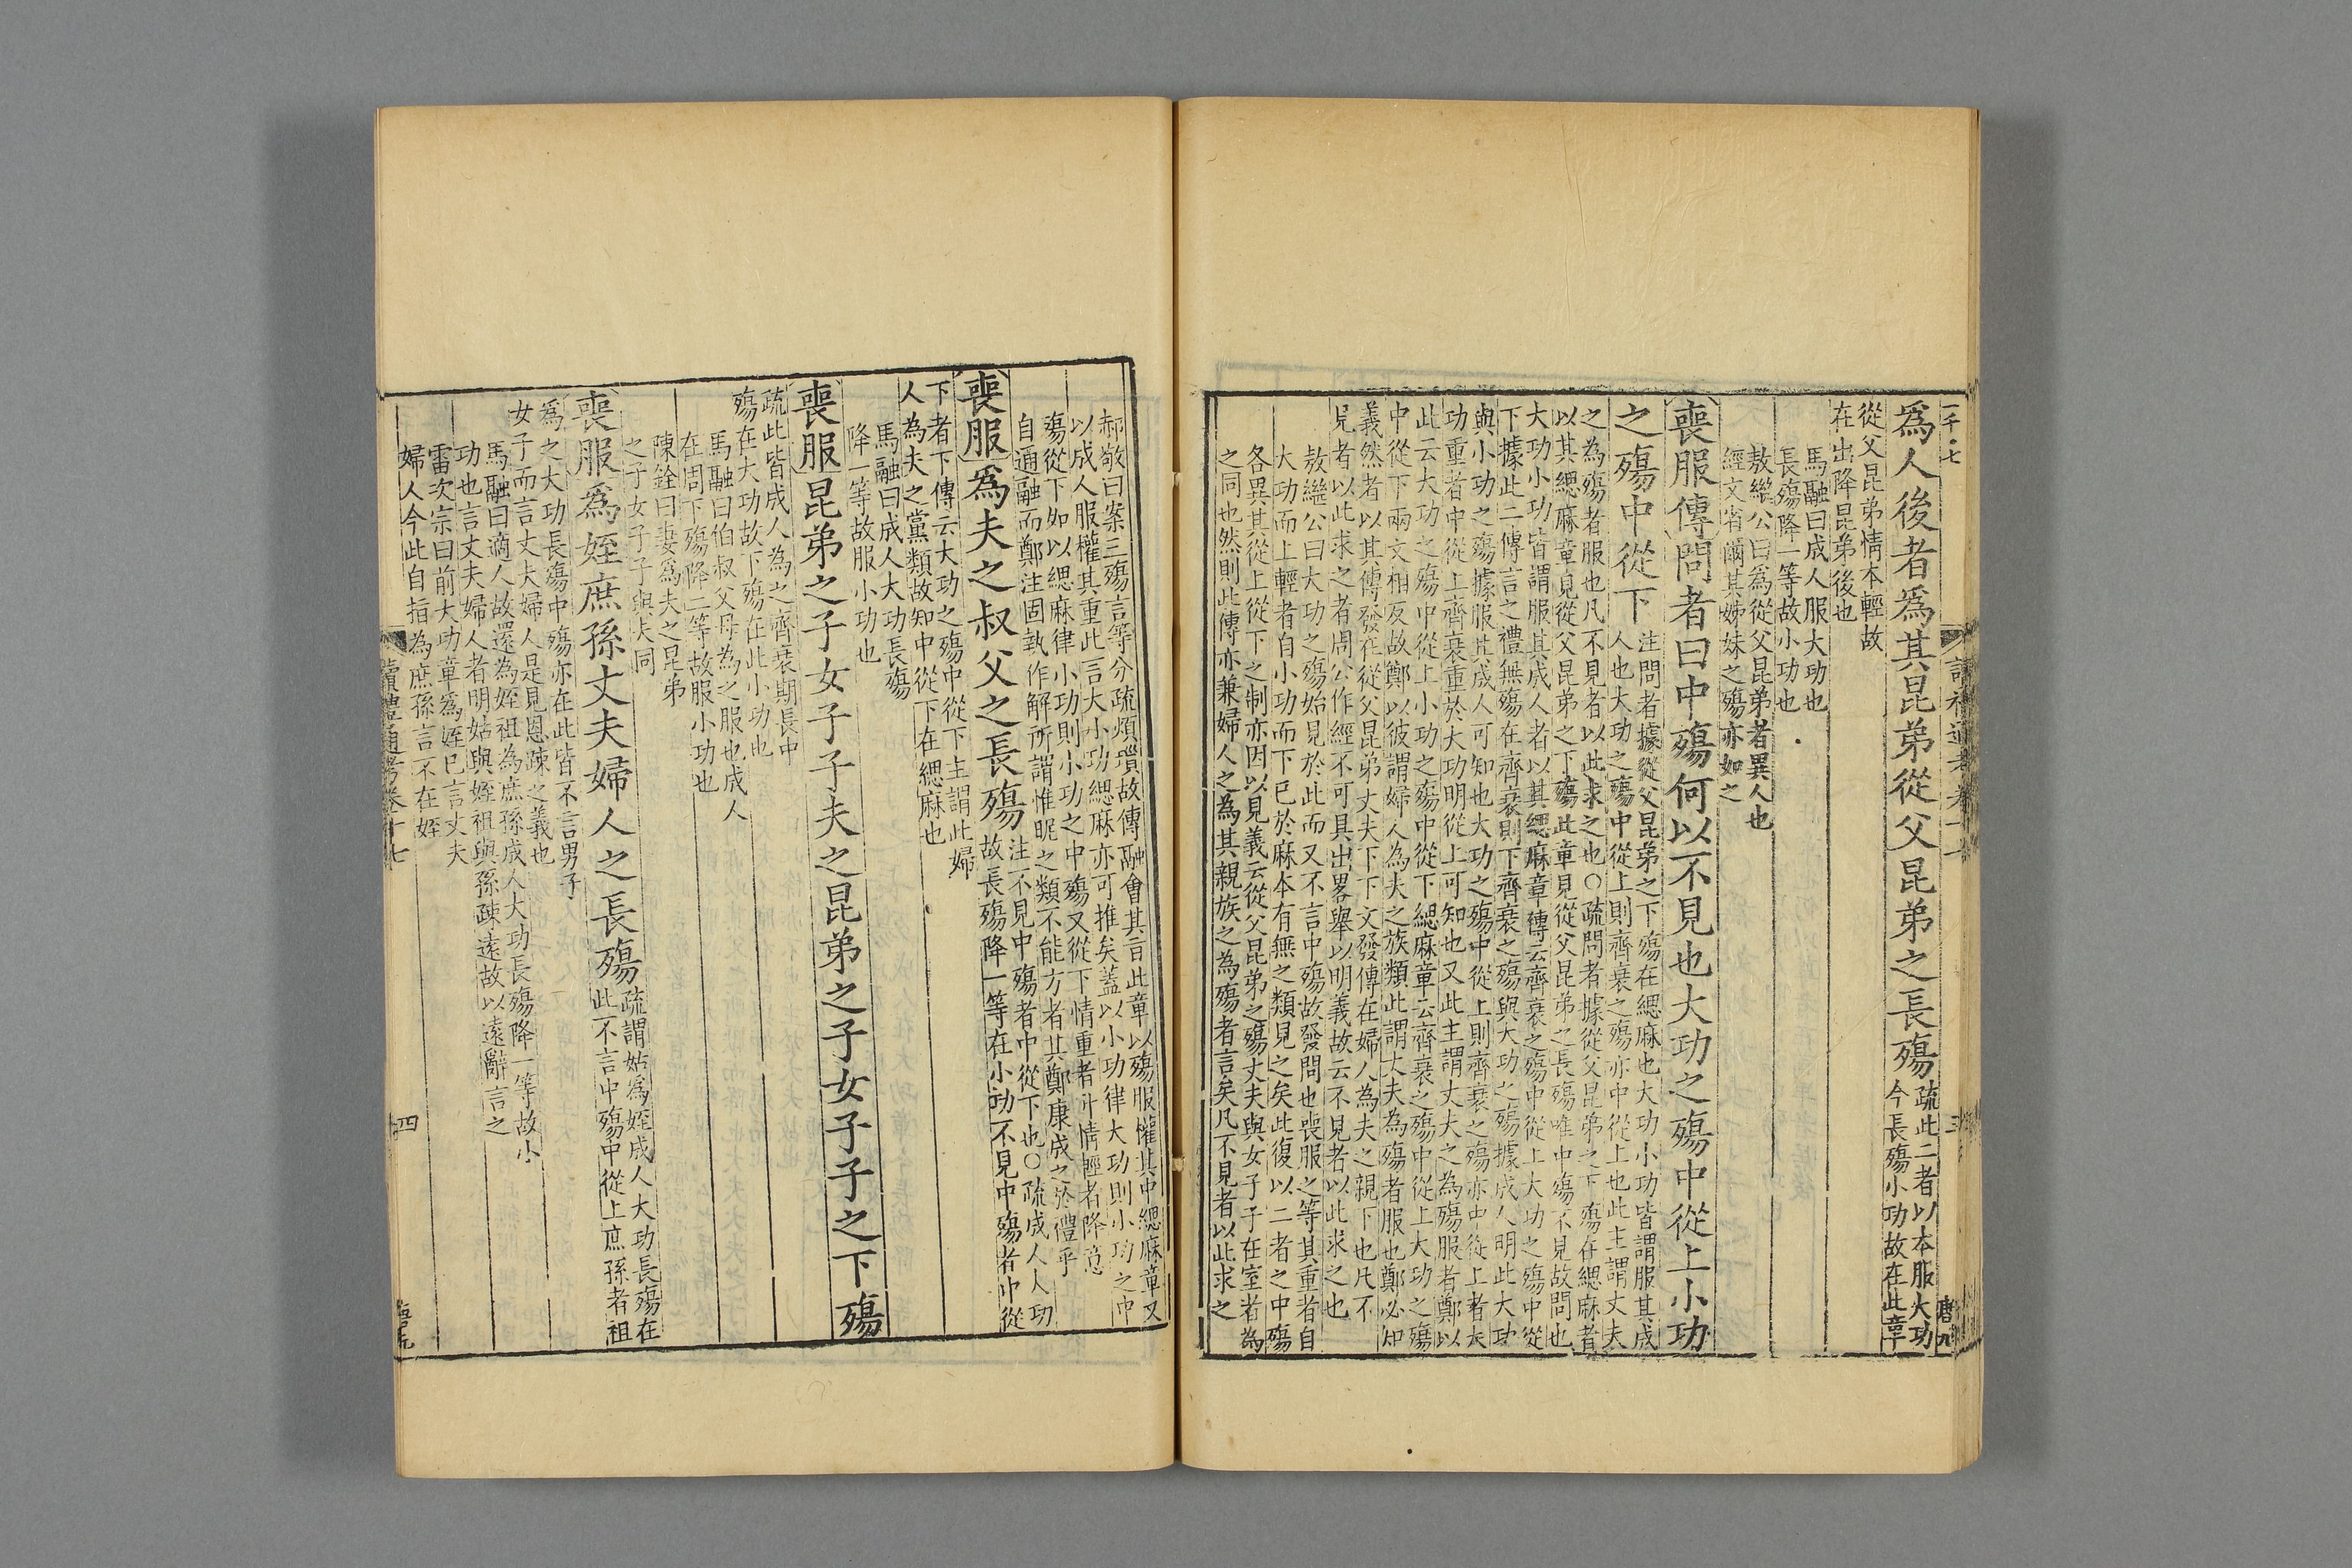 爲人後者爲其昆弟從父昆弟之長殤
疏此二者以本服大功
今長殤小功故在此章
從父昆弟情本輕故
在出降昆弟後也
馬融曰成人服大功也
長殤降一等故小功也
敖繼公曰爲從父昆弟者異人也
經文省爾其姊妹之殤亦如之
喪服傳問者曰中殤何以不見也大功之殤中從上小功
之殤中從下
注問者據從父昆弟之下殤在緦麻也大功小功皆謂服其成
人也大功之殤中從上則齊衰之殤亦中從上也此主謂丈夫
之為殤者服也凡不見者以此求之也○疏問者據從父昆弟之下殤在緦麻者
以其緦麻章見從父昆弟之下殤此章見從父昆弟之長殤唯中殤不見故問也
大功小功皆謂服其成人者以其緦麻章傳云齊衰之殤中從上大功之殤中從
下據此二傳言之禮無殤在齊衰則下齊衰之殤與大功之殤據成人明此大功
與小功之殤據服其成人可知也大功之殤中從上則齊衰之殤亦中從上者大
功重者中從上齊衰重於大功明從上可知也又此主謂丈夫之為殤服者鄭以
此云大功之殤中從上小功之殤中從下緦麻章云齊衰之殤中從上大功之殤
中從下兩文相反故鄭以彼謂婦人為夫之族類此謂丈夫為殤者服也鄭必知
義然者以其傳發在從父昆弟丈夫下下文發傳在婦人為夫之親下也凡不
見者以此求之者周公作經不可具出畧舉以明義故云不見者以此求之也
敖繼公曰大功之殤始見於此而又不言中殤故發問也喪服之等其重者自
大功而上輕者自小功而下已於麻本有無之類見之矣此復以二者之中殤
各異其從上從下之制亦因以見義云從父昆弟之殤丈夫與女子子在室者為
之同也然則此傳亦兼婦人之為其親族之為殤者言矣凡不見者以此求之
三
郝敬曰案三殤言等分疏煩瑣故傳融會其言此章以殤服權其中緦麻章又
以成人服權其重此言大小功緦麻亦可推矣蓋以小功律大功則小功之中
殤從下如以緦麻律小功則小功之中殤又從下情重者升情輕者降意
自通融而鄭注固執作解所謂惟昵之類不能方者其鄭康成之於禮乎
喪服爲夫之叔父之長殤
注不見中殤者中從下也○疏成人大功
故長殤降一等在小功不見中殤者中從
下者下傳云大功之殤中從下主謂此婦
人為夫之黨類故知中從下在緦麻也
馬融曰成人大功長殤
降一等故服小功也
喪服昆弟之子女子子夫之昆弟之子女子子之下殤
疏此皆成人為之齊衰期長中
殤在大功故下殤在此小功也
馬融曰伯叔父母為之服也成人
在周下殤降二等故服小功也
陳銓曰妻爲夫之昆弟
之子女子子與夫同
喪服爲姪庶孫丈夫婦人之長殤
疏謂姑爲姪成人大功長殤在
此不言中殤中從上庶孫者祖
為之大功長殤中殤亦在此皆不言男子
女子而言丈夫婦人是見恩疎之義也
馬融曰適人故還為姪祖為庶孫成人大功長殤降一等故小
功也言丈夫婦人者明姑與姪祖與孫疎遠故以遠辭言之
雷次宗曰前大功章爲姪已言丈夫
婦人今此自指為庶孫言不在姪
讀禮通考卷十七
四